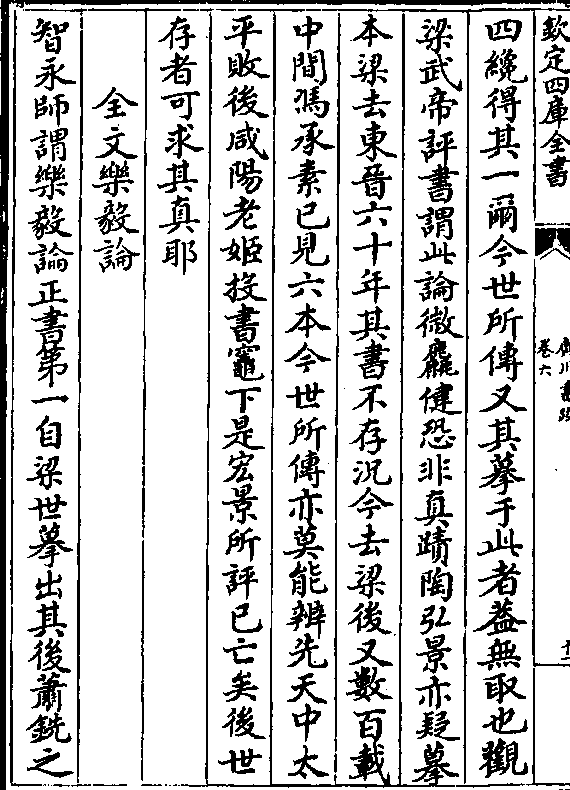 欽定四庫全書
卷六
四纔得其一爾今世所傳又其摹于此者蓋無取也觀
梁武帝評書謂此論微麤健恐非真蹟陶弘景亦疑摹
本梁去東晉六十年其書不存況今去梁後又數百載
中間馮承素已見六本今世所傳亦莫能辨先天中太
平敗後咸陽老姬投書竈下是宏景所評已亡矣後世
存者可求其真耶
全文樂毅論
智永師謂樂毅論正書第一自梁世摹出其後蕭銑之